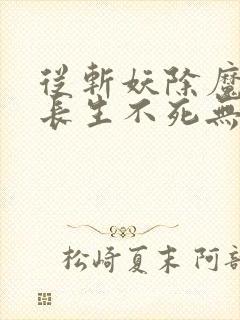 從斬妖除魔
長生不死無
松崎夏末 阿部